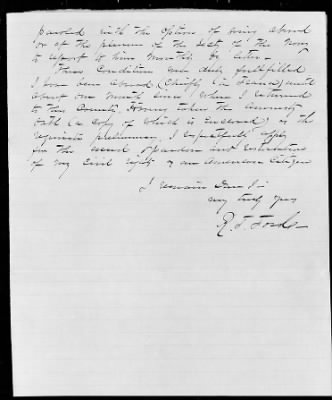 paroled with the option of going abroad
or of the
to report to him monthly by letter.
These Conditions were duly fulfilled
I have been abroad (chiefly in France) until
about one month since when I returned
to this Country. Having taken the Amnesty
oath (a copy of which is Enclosed) as the
requisite preliminary I respectfully apply
for the usual pardon and restoration
of my Civil rights as an American Citizen
I remain Dear Sir
very truly yours
R. J.